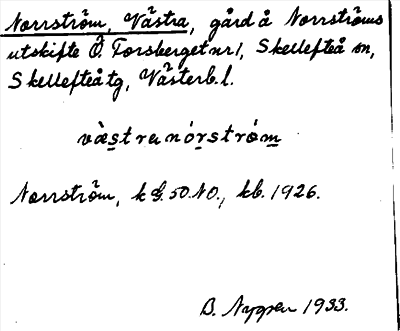 Norrström, Västra, gård å Norrströms
utskifte Ö. Forsberget nr 1, Skellefteå sn,
Skellefteå tg, Västerb. l.
væ̀stranórström
Norrström, k bl. 50. NO., kb. 1926.
B. Nygren 1933.